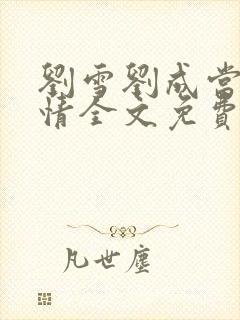 劉雪劉成當
情全文免費
凡世塵